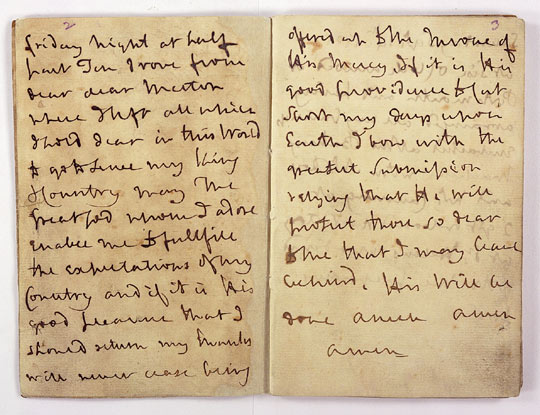 2
friday night at half
past Ten I drove from
dear dear Merton
where I left all which
I hold dear in this World
to go to serve my King
& Country may The
Great God whom I adore
enable me to fullfill
the expectations of my
Country and if it is His
good pleasure that I
should return my thanks
will never cease being
3
offered up to the throne of
His Mercy, If it is His
good providence to cut
short my days upon
Earth I bow with the
greatest Submission
relying that He will
protect those so dear
to me that I may leave
behind, His Will be
done amen amen
amen